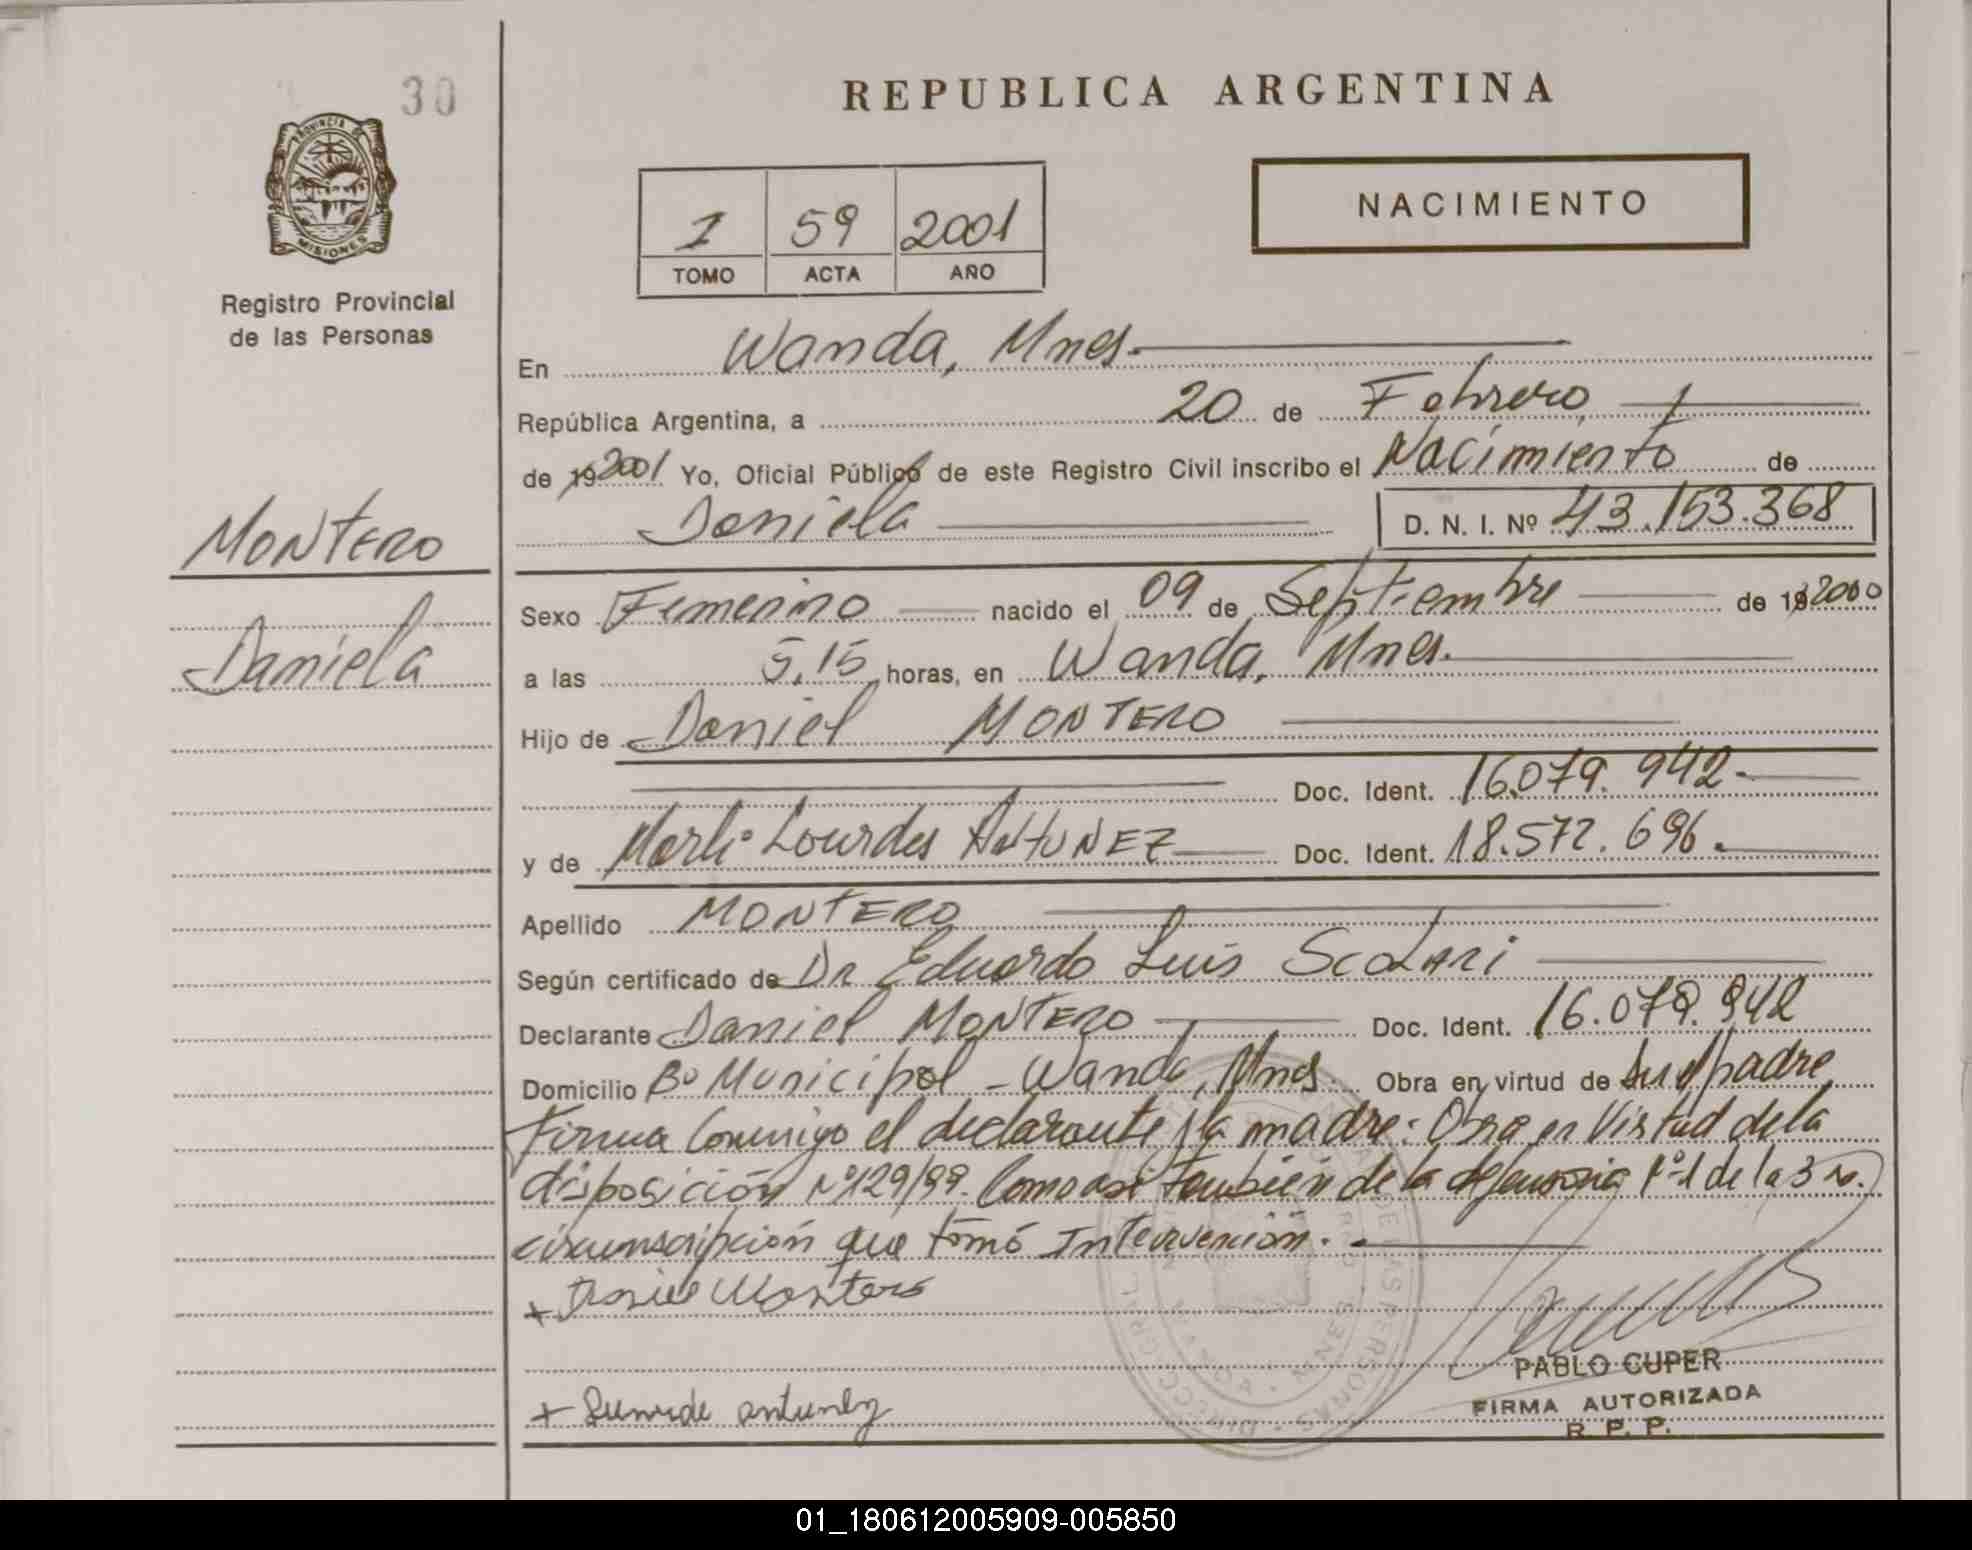 30
REPUBLICA ARGENTINA
PROVINCIA DE
MISIONES
Registro Provincial
de las Personas
1 59 2001
TOMO ACTA AÑO
NACIMIENTO
En Wanda, Mnes.
República Argentina, a 20 de Febrero
de 19 2001 Yo, Oficial Público de este Registro Civil inscribo el Nacimiento de
Daniela D. N. I. Nº 43.153.368
MONTERO
Daniela
Sexo Femenino nacido el 09 de Septiembre de 19 2000
a las 5,15 horas, en Wanda, Mnes.
Hijo de Daniel MONTERO
Doc. Ident. 16.079.942
y de Marli Lourdes ANTUNEZ Doc. Ident. 18.572.696.
Apellido MONTERO
Según certificado de Dr Eduardo Luis Scolari
Declarante Daniel MONTERO Doc. Ident. 16.079.942
Domicilio Bº Municipal - Wanda, Mnes. Obra en virtud de ser el padre
Firma Conmigo el declarante y la madre: Obra en Virtud de la
disposición Nº 129/99. Como así también de la defensoria Nº 1 de la 3
circunscripción que tomó Intervención.
+ Daniel Montero
PABLO CUPER
FIRMA AUTORIZADA
R. P. P.
+ antunez
01_180612005909-005850